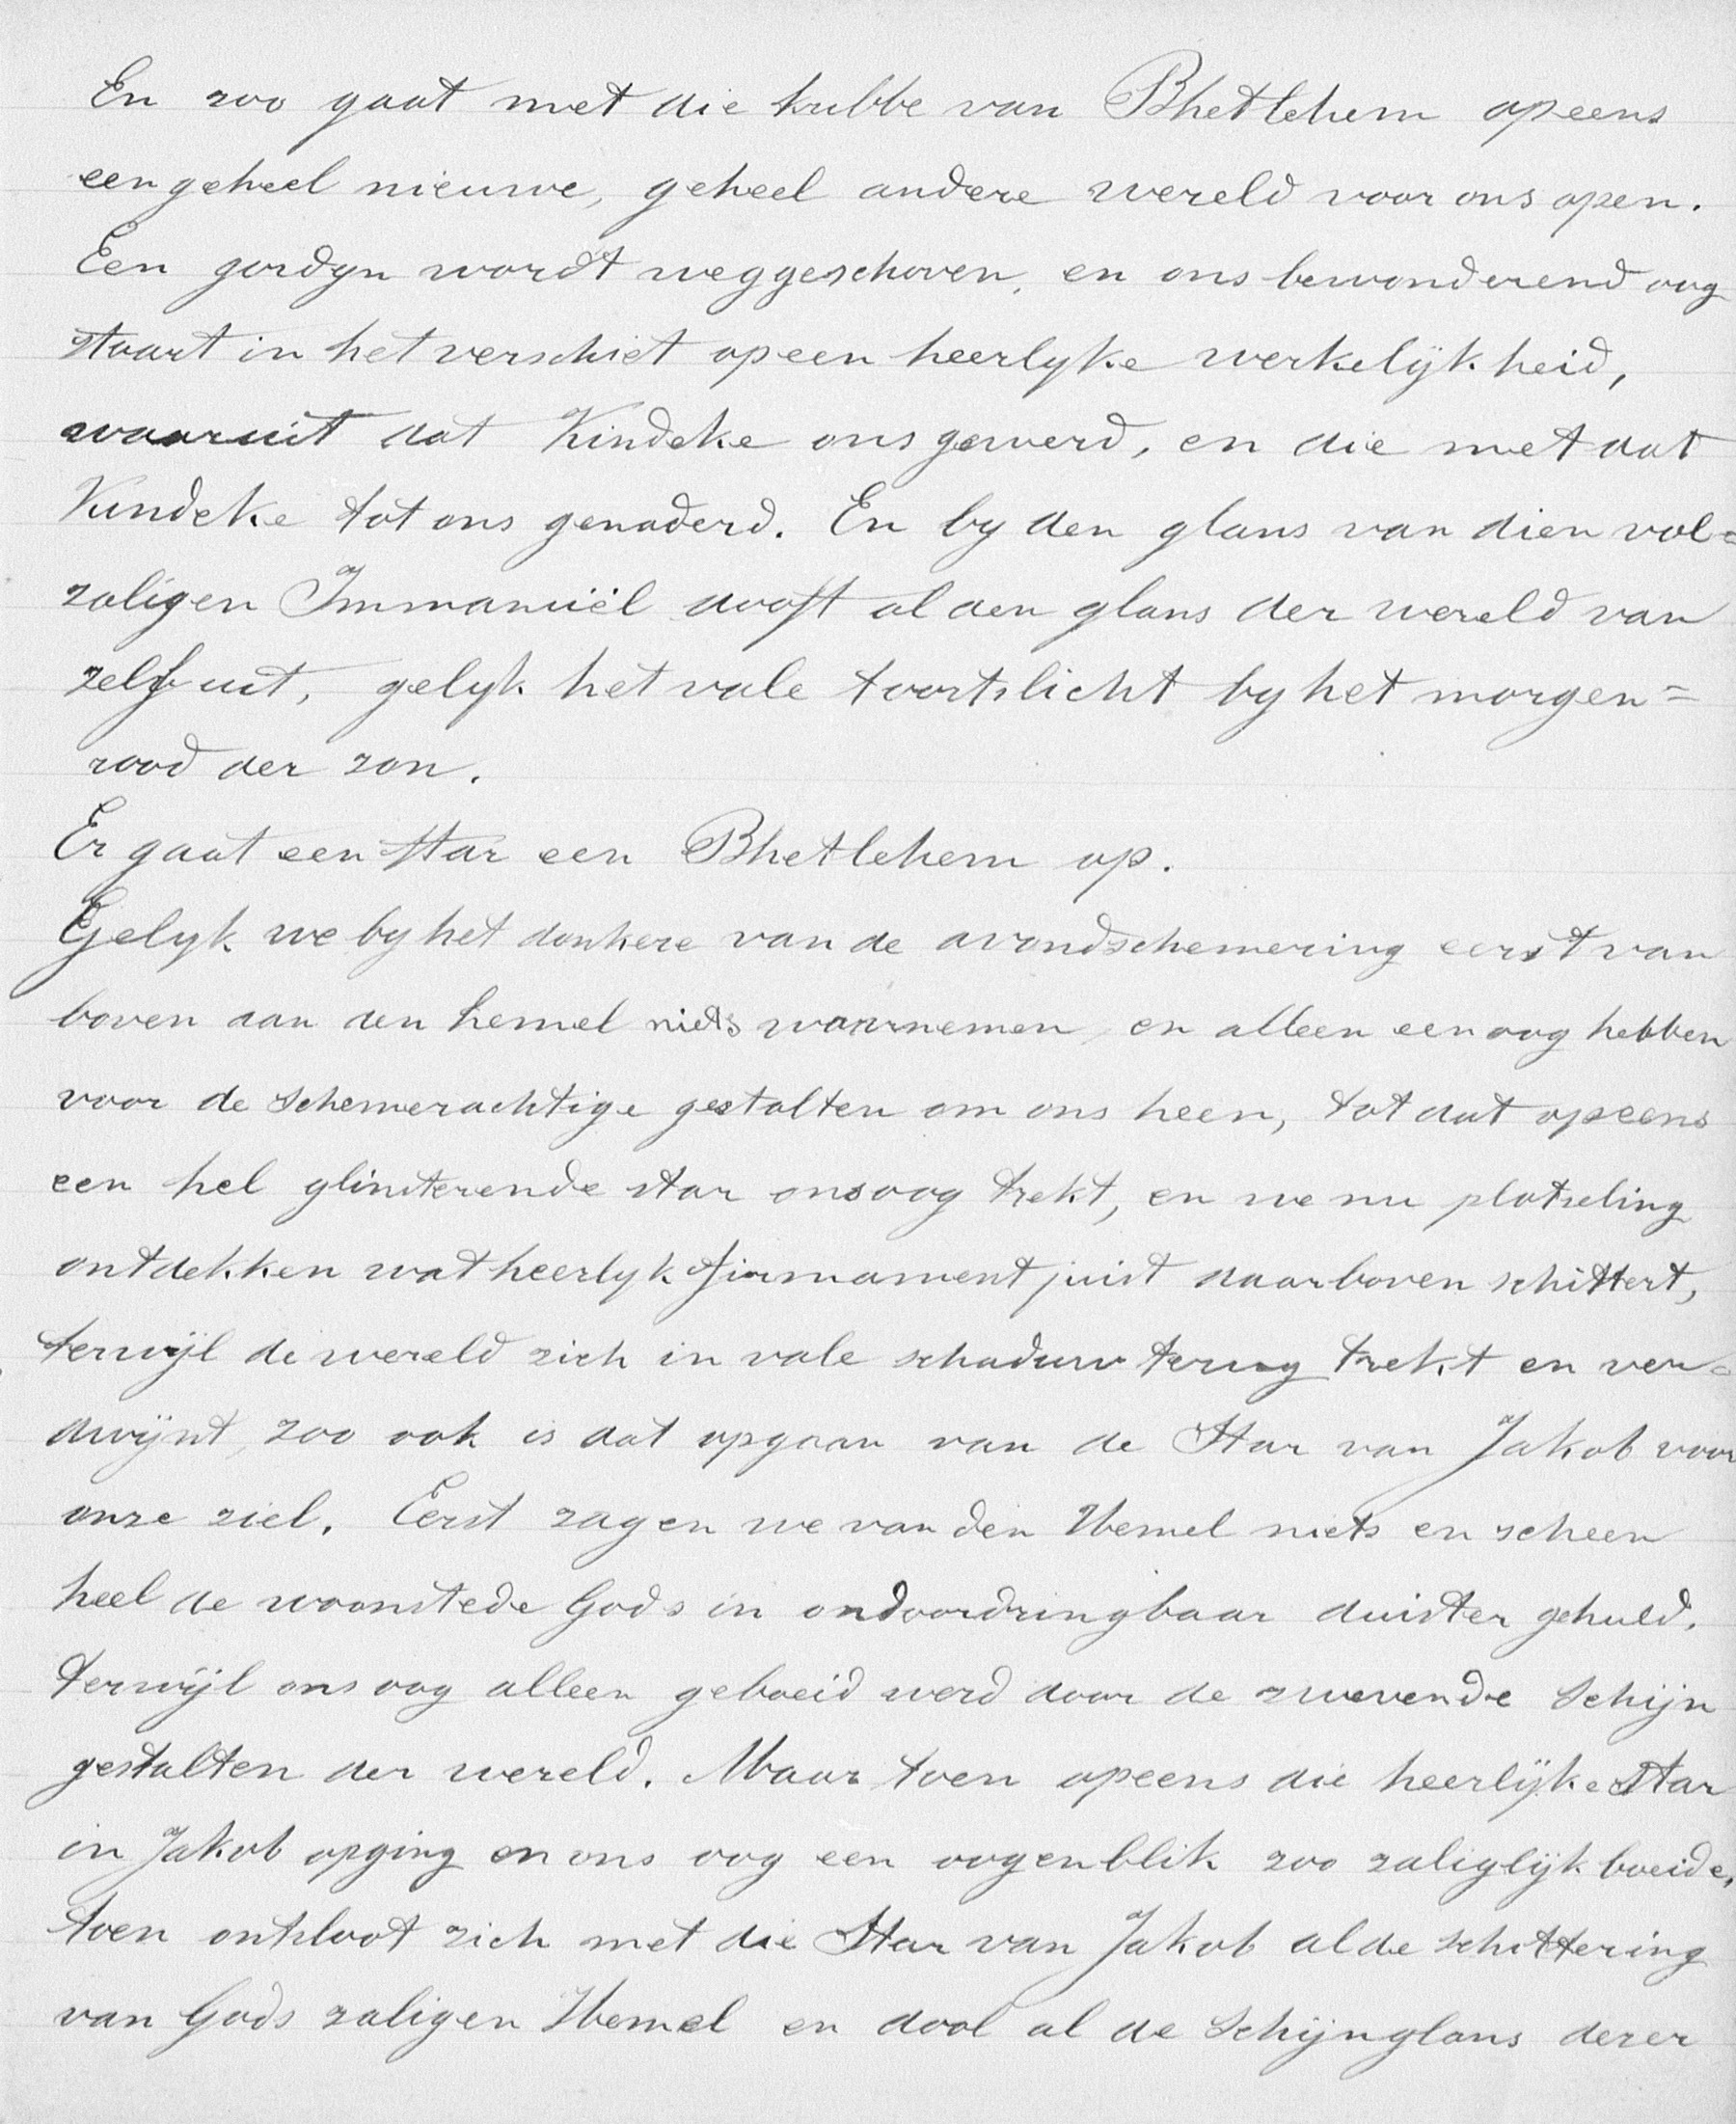 En zoo gaat met die kribbe van Bhetlehem opeens
een geheel nieuwe, geheel andere wereld voor ons open.
Een gordyn wordt weggeschoven, en ons bewonderend oog
staart in het verschiet op een heerlyke werkelijkheid,
waaruit dat Kindeke ons gewerd, en die met dat
Kindeke tot ons genaderd. En by den glans van dien vol=
zaligen Immanuël dooft al den glans der wereld van
zelf uit, gelyk het vale toortslicht by het morgen=
rood der zon.
Er gaat een star een Bhetlehem op.
Gelyk we by het donkere van de avondschemering eerst van
boven aan den hemel niets waarnemen, en alleen een oog hebben
voor de schemerachtige gestalten om ons heen, tot dat opeens
een hel glinsterende star ons oog trekt, en we nu plotseling
ontdekken wat heerlyk firmament juist daarboven schittert,
terwijl de wereld zich in vale schaduw terug trekt en ver=
dwijnt, zoo ook is dat opgaan van de Star van Jakob voor
onze ziel. Eerst zagen we van den Hemel niets en scheen
heel de woonstede Gods in ondoordringbaar duister gehuld.
terwijl ons oog alleen geboeid werd door de zwevende schijn
gestalten der wereld. Maar toen opeens die heerlijke Star
in Jakob opging en ons oog een oogenblik zoo zaliglijk boeide,
toen ontsloot zich met die Star van Jakob al de schittering
van Gods zaligen Hemel en dool al de schijnglans derer